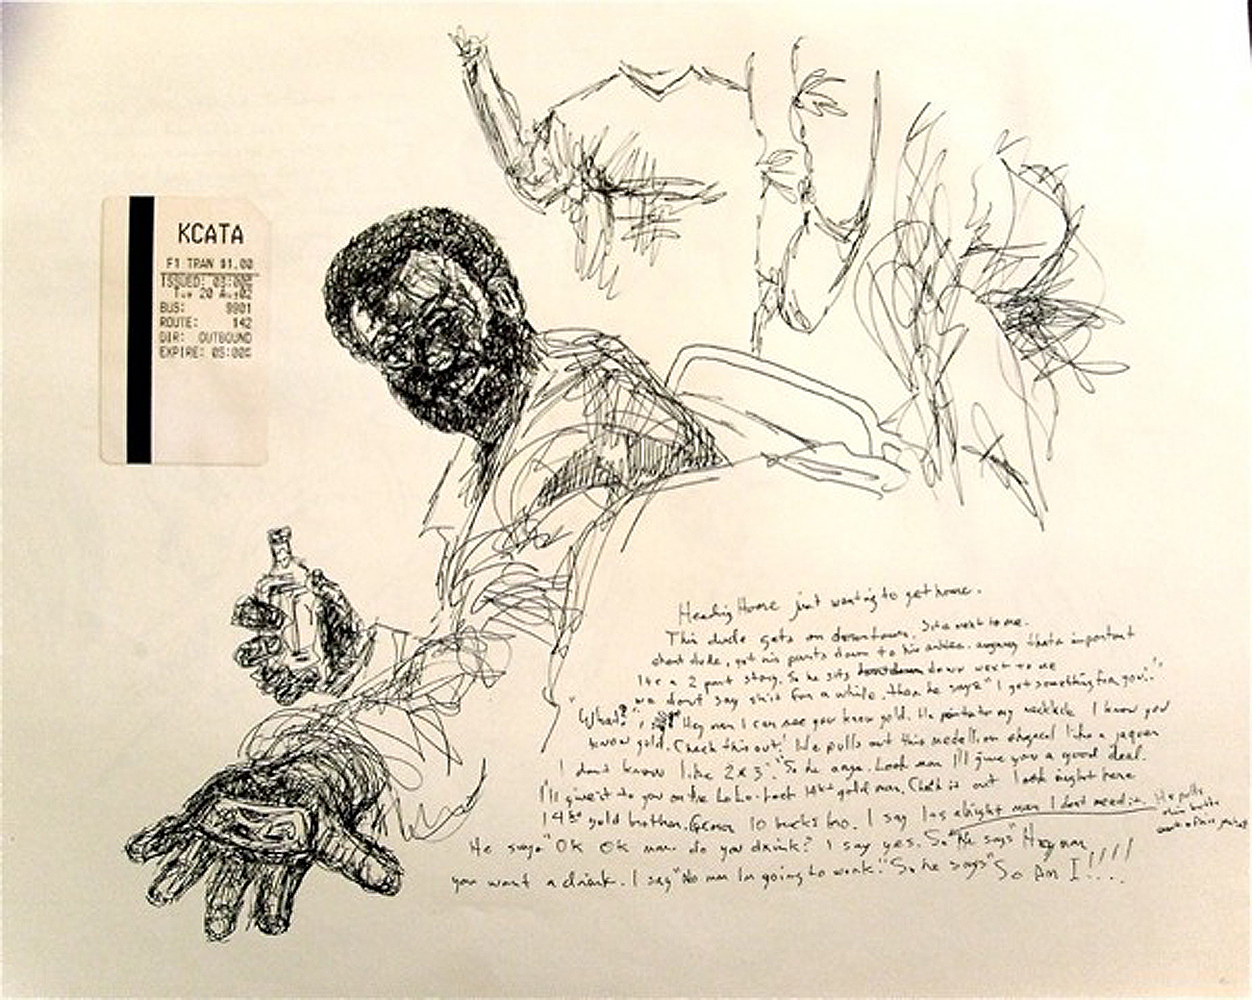 KCATA
F1 TRAN $1.00
ISSUED: 03:00
Tue 20 Aug02
BUS: 9801
ROUTE: 142
DIR: OUTBOUND
EXPIRE: 05:00
Heading Home just wanting to get home.
This dude gets on downtown. Sits next to me.
short dude, got his pants down to his ankles. anyway thats important
a 2 part story. So he sits down next to me
we dont say shit for a while. then he says "I got something for you."
"What?" "Hey man I can see you know gold. He points to my necklace I know you
know gold. Check this out." He pulls out this medallion shaped like a jaguar
I dont know like 2x3". So he says. Look man I'll give you a good deal.
I'll give it to you on the Lo Lo. look 14kt gold man. Check it out look right here
14kt gold brother. Gimme 10 bucks bro. I say no alright man I dont need it. He pulls
out of his jacket
He says "OK OK man do you drink? I say yes. So "he says" Hey man
you want a drink. I say "No man Im going to work." So he says "So Am I!!!!